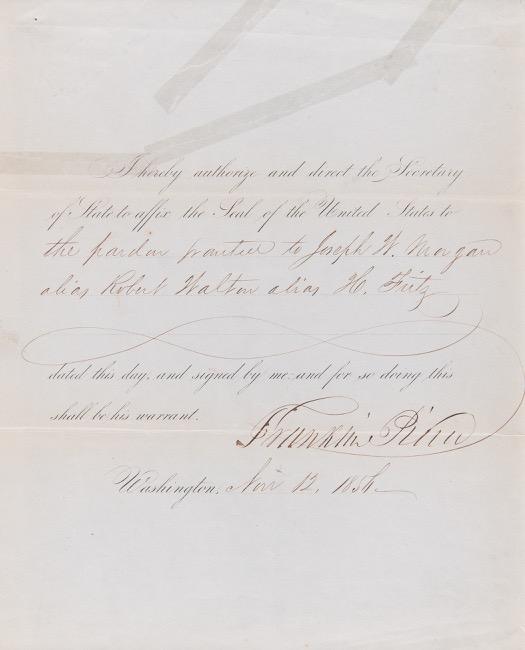 I hereby authorize and direct the Secretary
of State to affix the Seal of the United States to
the pardon granted to Joseph W. Morgan
alias Robert Walton alias H. Fitz
dated this day, and signed by me: and for so doing this
shall be his warrant.
Franklin Pierce
Washington, Nov 12, 1856